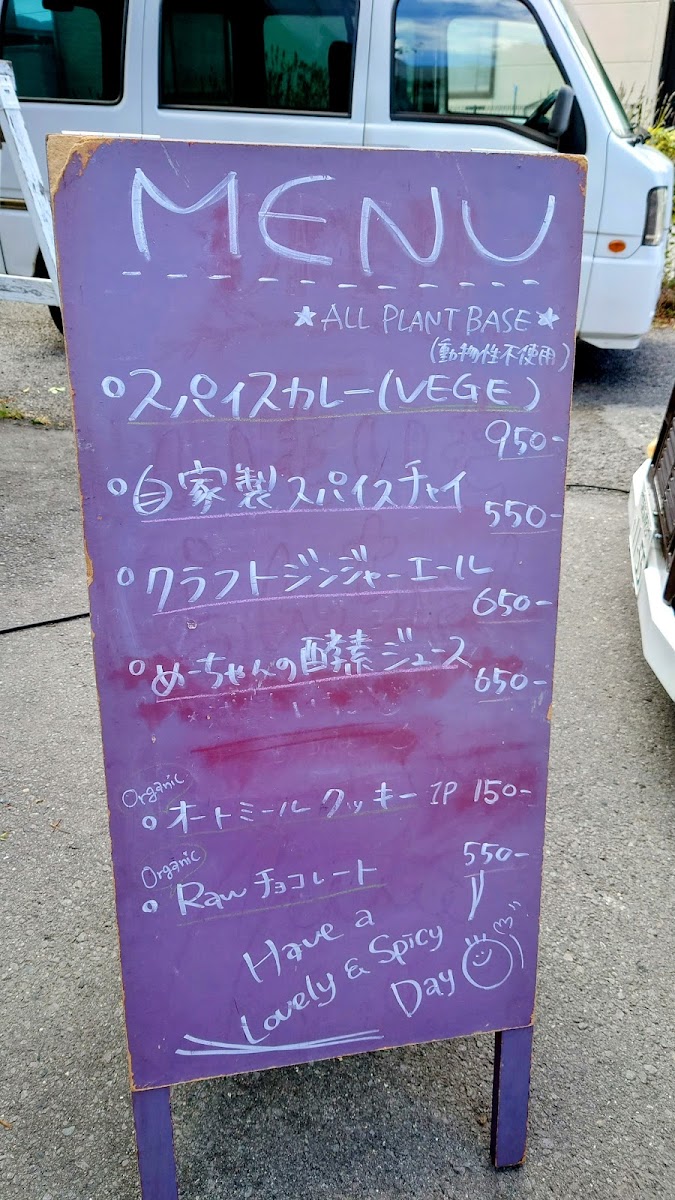 MENU
★ALL PLANT BASE★
(動物性不使用)
スパイスカレー(VEGE)
950-
自家製スパイスチャイ
550-
クラフトジンジャーエール
650-
めーちゃんの酵素ジュース
650-
Organic
オートミールクッキー 1P 150-
Organic
550-
Raw チョコレート
Have a
Lovely & Spicy
Day